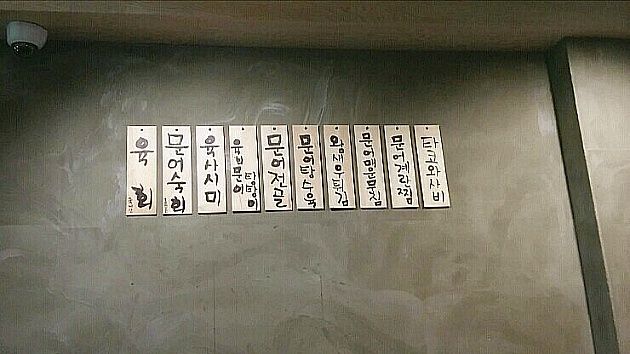 육회
문어숙회
육사시미
육회문어
탕탕이
문어전골
문어탕수육
왕새우튀김
문어맹문무침
문어계란찜
타코와사비